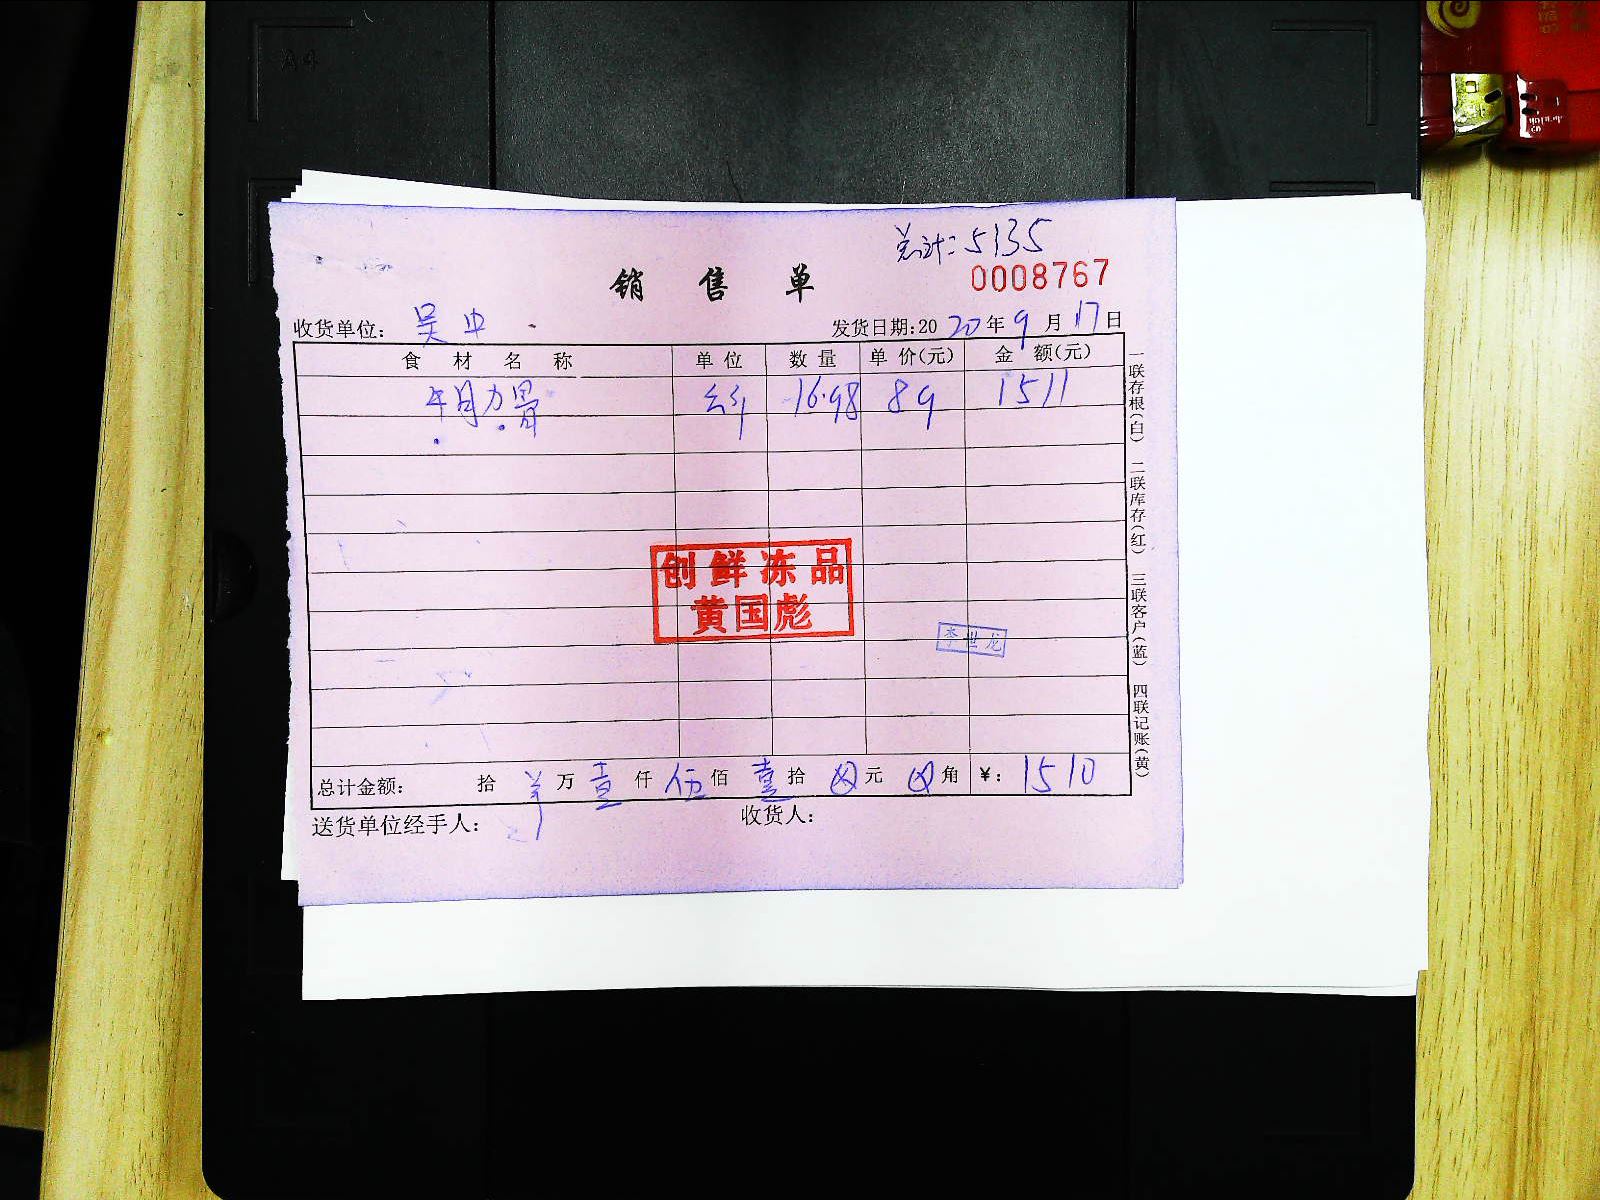 总计:5135
0008767
销售单
收货单位: 吴中
发货日期:2020年9月17日
食材名称 单位 数量 单价(元) 金额(元)
牛月力骨 公斤 16.98 89 1511
创鲜冻品
黄国彪
李世龙
总计金额: 拾 万 壹仟 伍佰 壹拾 元 角 ¥: 1510
送货单位经手人:
收货人:
一联存根(白) 二联库存(红) 三联客户(蓝) 四联记账(黄)